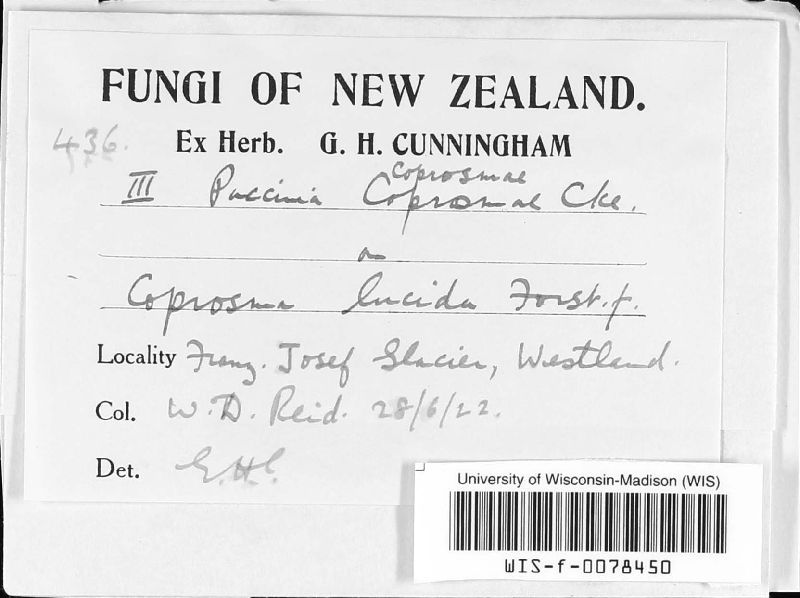 FUNGI OF NEW ZEALAND.
436. Ex Herb. G. H. CUNNINGHAM
coprosmae
III Puccinia Coprosmae Cke.
on
Coprosma lucida Forst. f.
Locality Franz. Josef Glacier, Westland.
Col. W. D. Reid. 28/6/22.
Det. G.H.C.
University of Wisconsin-Madison (WIS)
WIS-f-0078450